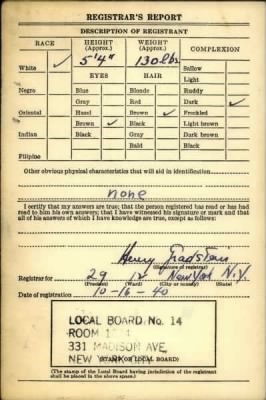 REGISTRAR'S REPORT
DESCRIPTION OF REGISTRANT
RACE HEIGHT (Approx.) WEIGHT (Approx.) COMPLEXION
5'4" 130 lbs
White ✓ EYES HAIR Sallow
Light
Negro Blue Blonde Ruddy
Gray Red Dark ✓
Oriental Hazel Brown ✓ Freckled
Brown ✓ Black Light brown
Indian Black Gray Dark brown
Bald Black
Filipino
Other obvious physical characteristics that will aid in identification
none
I certify that my answers are true; that the person registered has read or has had
read to him his own answers; that I have witnessed his signature or mark and that
all of his answers of which I have knowledge are true, except as follows:
Henry
(Signature of registrar)
Registrar for 29 12 New York N.Y.
(Precinct) (Ward) (City or county) (State)
Date of registration 10-16-40
LOCAL BOARD No. 14
ROOM
331 MADISON AVE
NEW YORK
(STAMP OF LOCAL BOARD)
(The stamp of the Local Board having jurisdiction of the registrant
shall be placed in the above space.)